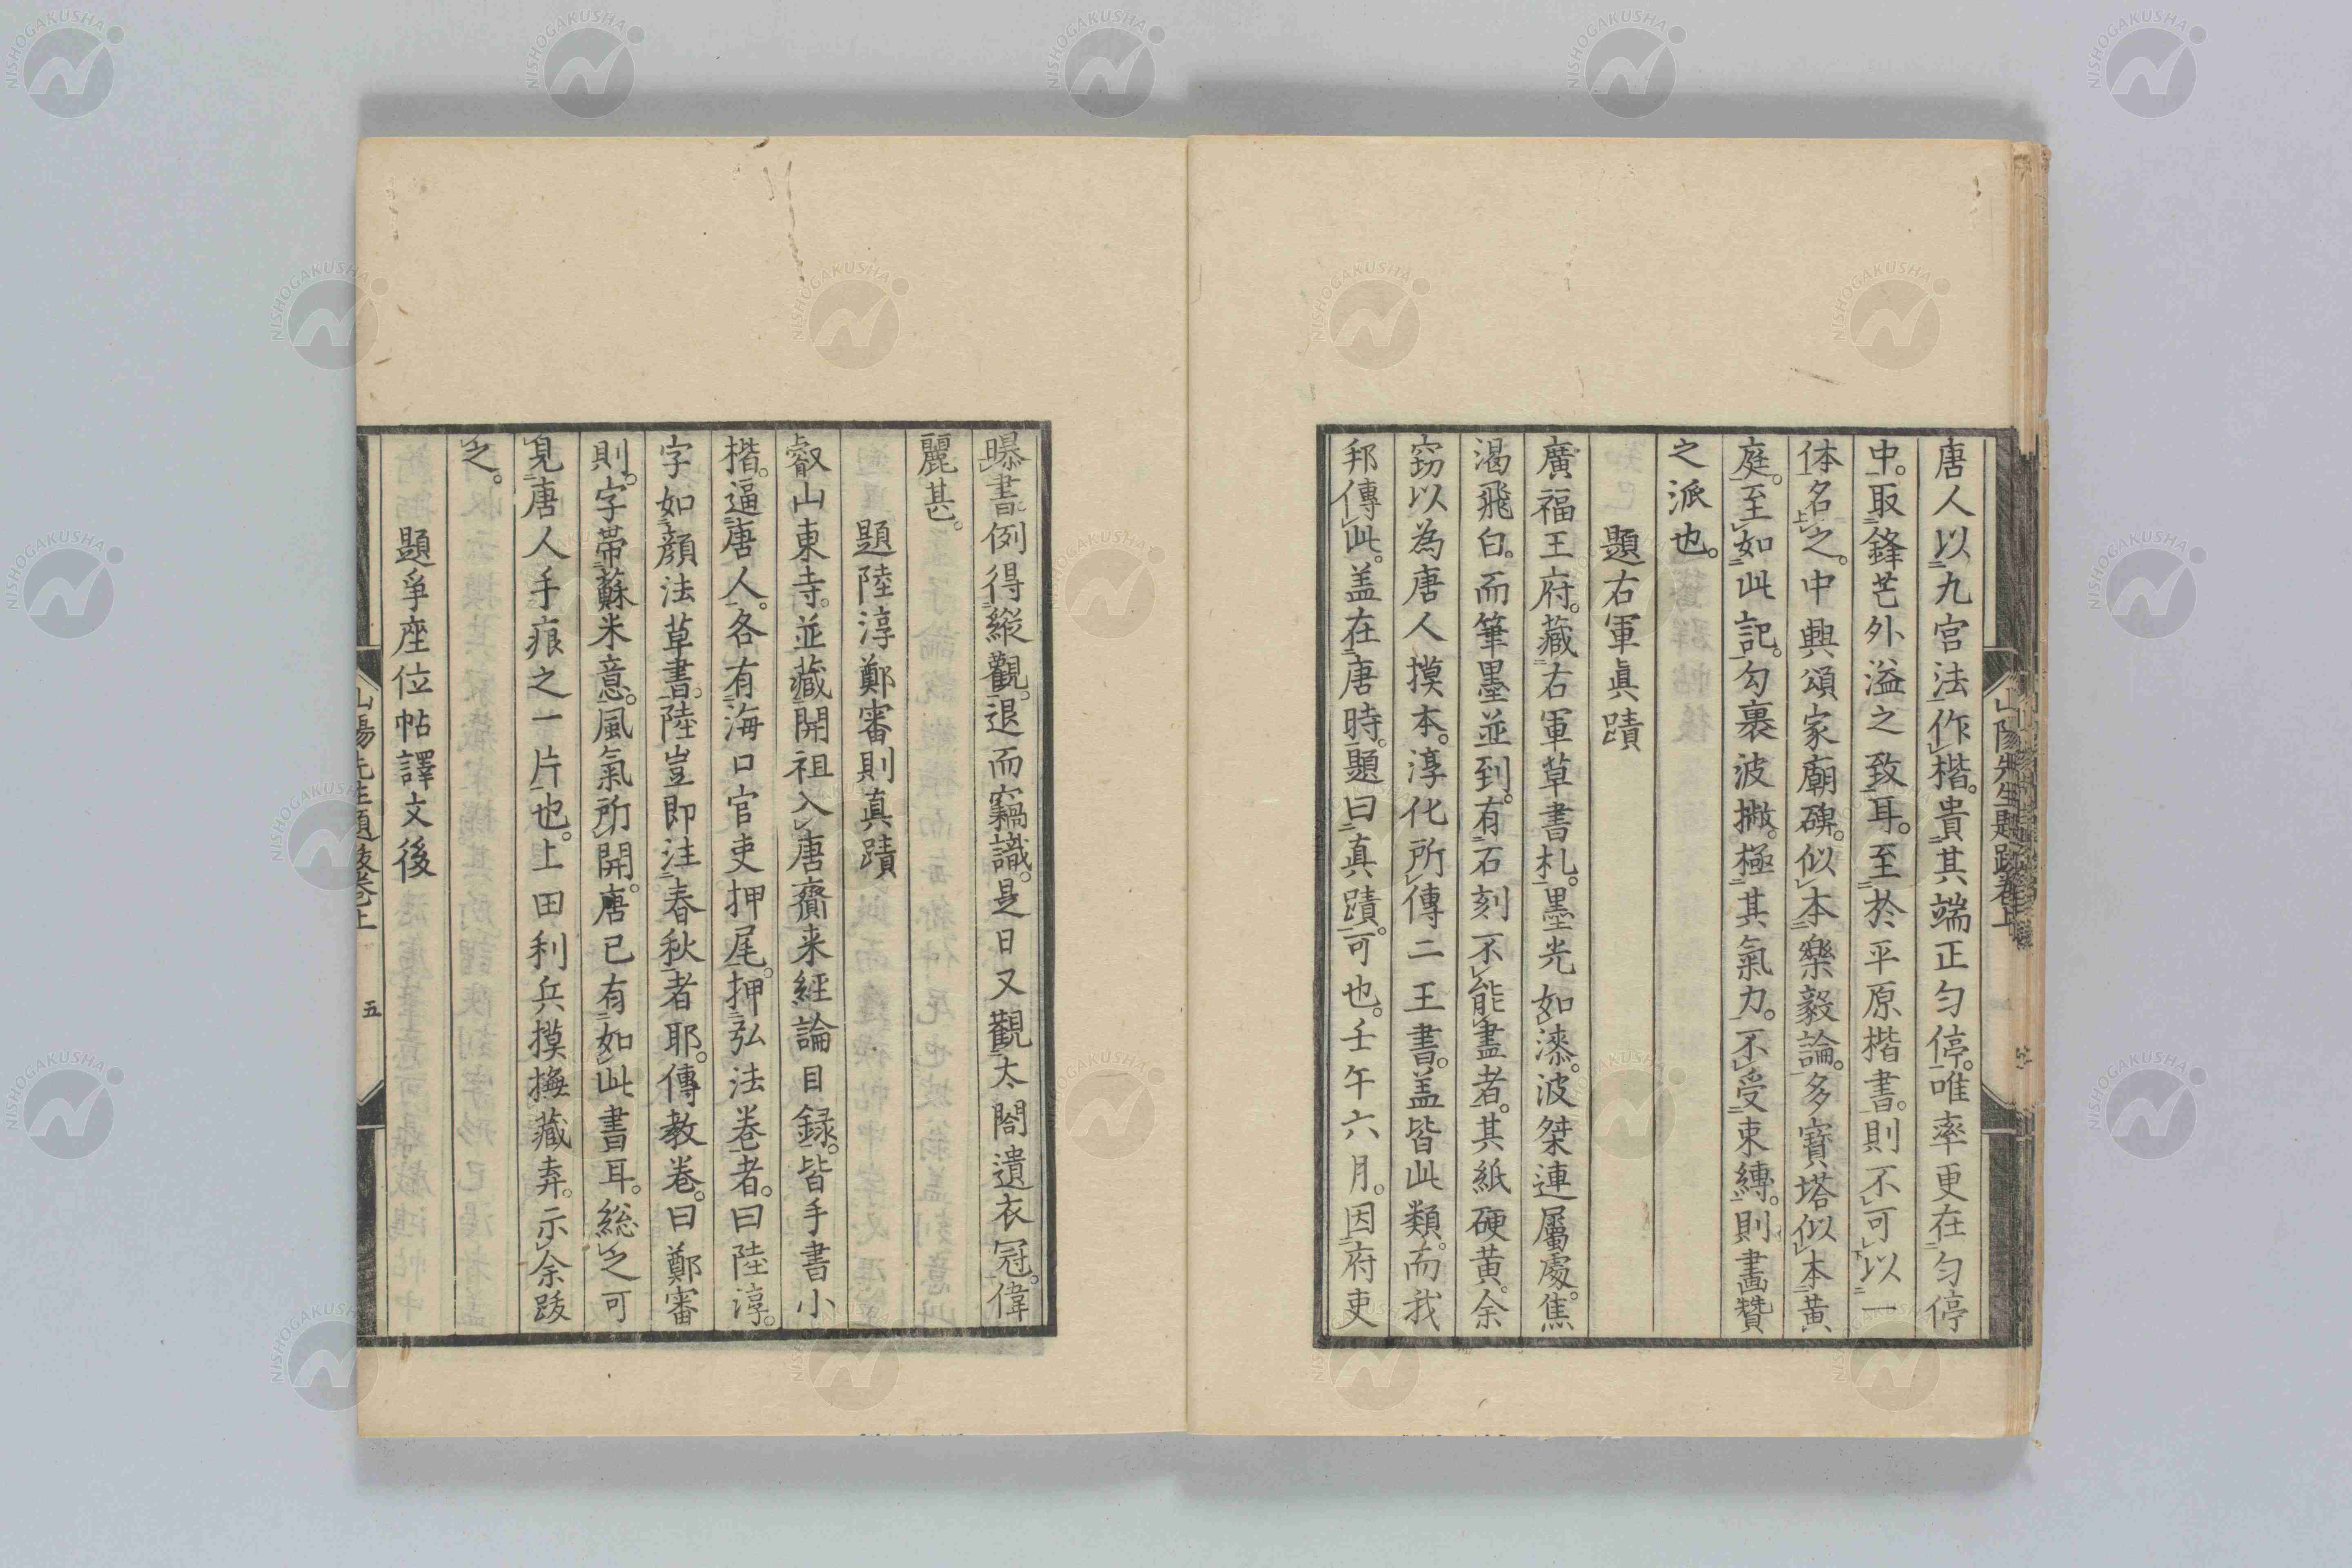 唐人以九宮法作楷。貴其端正勻停。唯率更在勻停
中。取鋒芒外溢之致耳。至於平原楷書。則不可以一
体名之。中興頌家廟碑。似本樂毅論。多寶塔似本黃
庭。至如此記。勾裹波撇。極其氣力。不受束縛。則畫贊
之派也。
題右軍眞蹟
廣福王府。藏右軍草書札。墨光如漆。波桀連屬處。焦
渴飛白。而筆墨並到。有石刻不能盡者。其紙硬黄。余
窃以為唐人摸本。淳化所傳二王書。盖皆此類。而我
邦傳此。盖在唐時。題曰真蹟。可也。壬午六月。因府吏
曝書例得縱觀。退而竊識。是日又觀太閤遺衣冠。偉
麗甚。
題陸淳鄭審則真蹟
叡山東寺。並藏開祖入唐齎来經論目録。皆手書小
楷。逼唐人。各有海口官吏押尾。押弘法卷者。曰陸淳。
字如顔法草書。陸豈即注春秋者耶。傳教卷。曰鄭審
則。字帶蘇米意。風氣所開。唐已有如此書耳。総之可
見唐人手痕之一片也。上田利兵摸撫藏弆。示余跋
之。
題爭座位帖譯文後
山陽先生題跋卷上
五
山陽先生題跋卷上
NISHOGAKUSHA